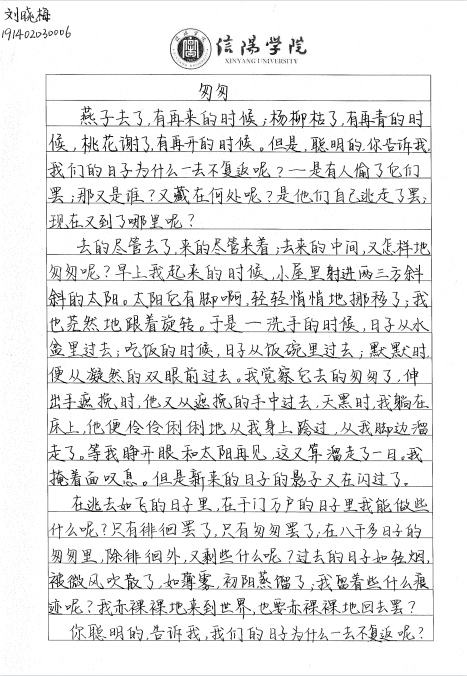 刘晓梅
191402030006
信阳学院
XINYANG UNIVERSITY
匆匆
燕子去了,有再来的时候;杨柳枯了,有再青的时
候,桃花谢了,有再开的时候。但是,聪明的,你告诉我,
我们的日子为什么一去不复返呢?一是有人偷了它们
罢;那又是谁?又藏在何处呢?是他们自己逃走了罢;
现在又到了哪里呢?
去的尽管去了,来的尽管来着;去来的中间,又怎样地
匆匆呢?早上我起来的时候,小屋里射进两三方斜
斜的太阳。太阳它有脚啊,轻轻悄悄地挪移了;我
也茫然地跟着旋转。于是一洗手的时候,日子从水
盆里过去;吃饭的时候,日子从饭碗里过去;默默时,
便从凝然的双眼前过去。我觉察它去的匆匆了,伸
出手遮挽时,他又从遮挽的手中过去,天黑时,我躺在
床上,他便伶伶俐俐地从我身上跨过,从我脚边溜
走了。等我睁开眼和太阳再见,这又算溜走了一日。我
掩着面叹息。但是新来的日子的影子又在闪过了。
在逃去如飞的日子里,在千门万户的日子里我能做些
什么呢?只有徘徊罢了,只有匆匆罢了;在八千多日子的
匆匆里,除徘徊外,又剩些什么呢?过去的日子如轻烟,
被微风吹散了,如薄雾,初阳蒸馏了;我留着些什么痕
迹呢?我赤裸裸地来到世界,也要赤裸裸地回去罢?
你聪明的,告诉我,我们的日子为什么一去不复返呢?